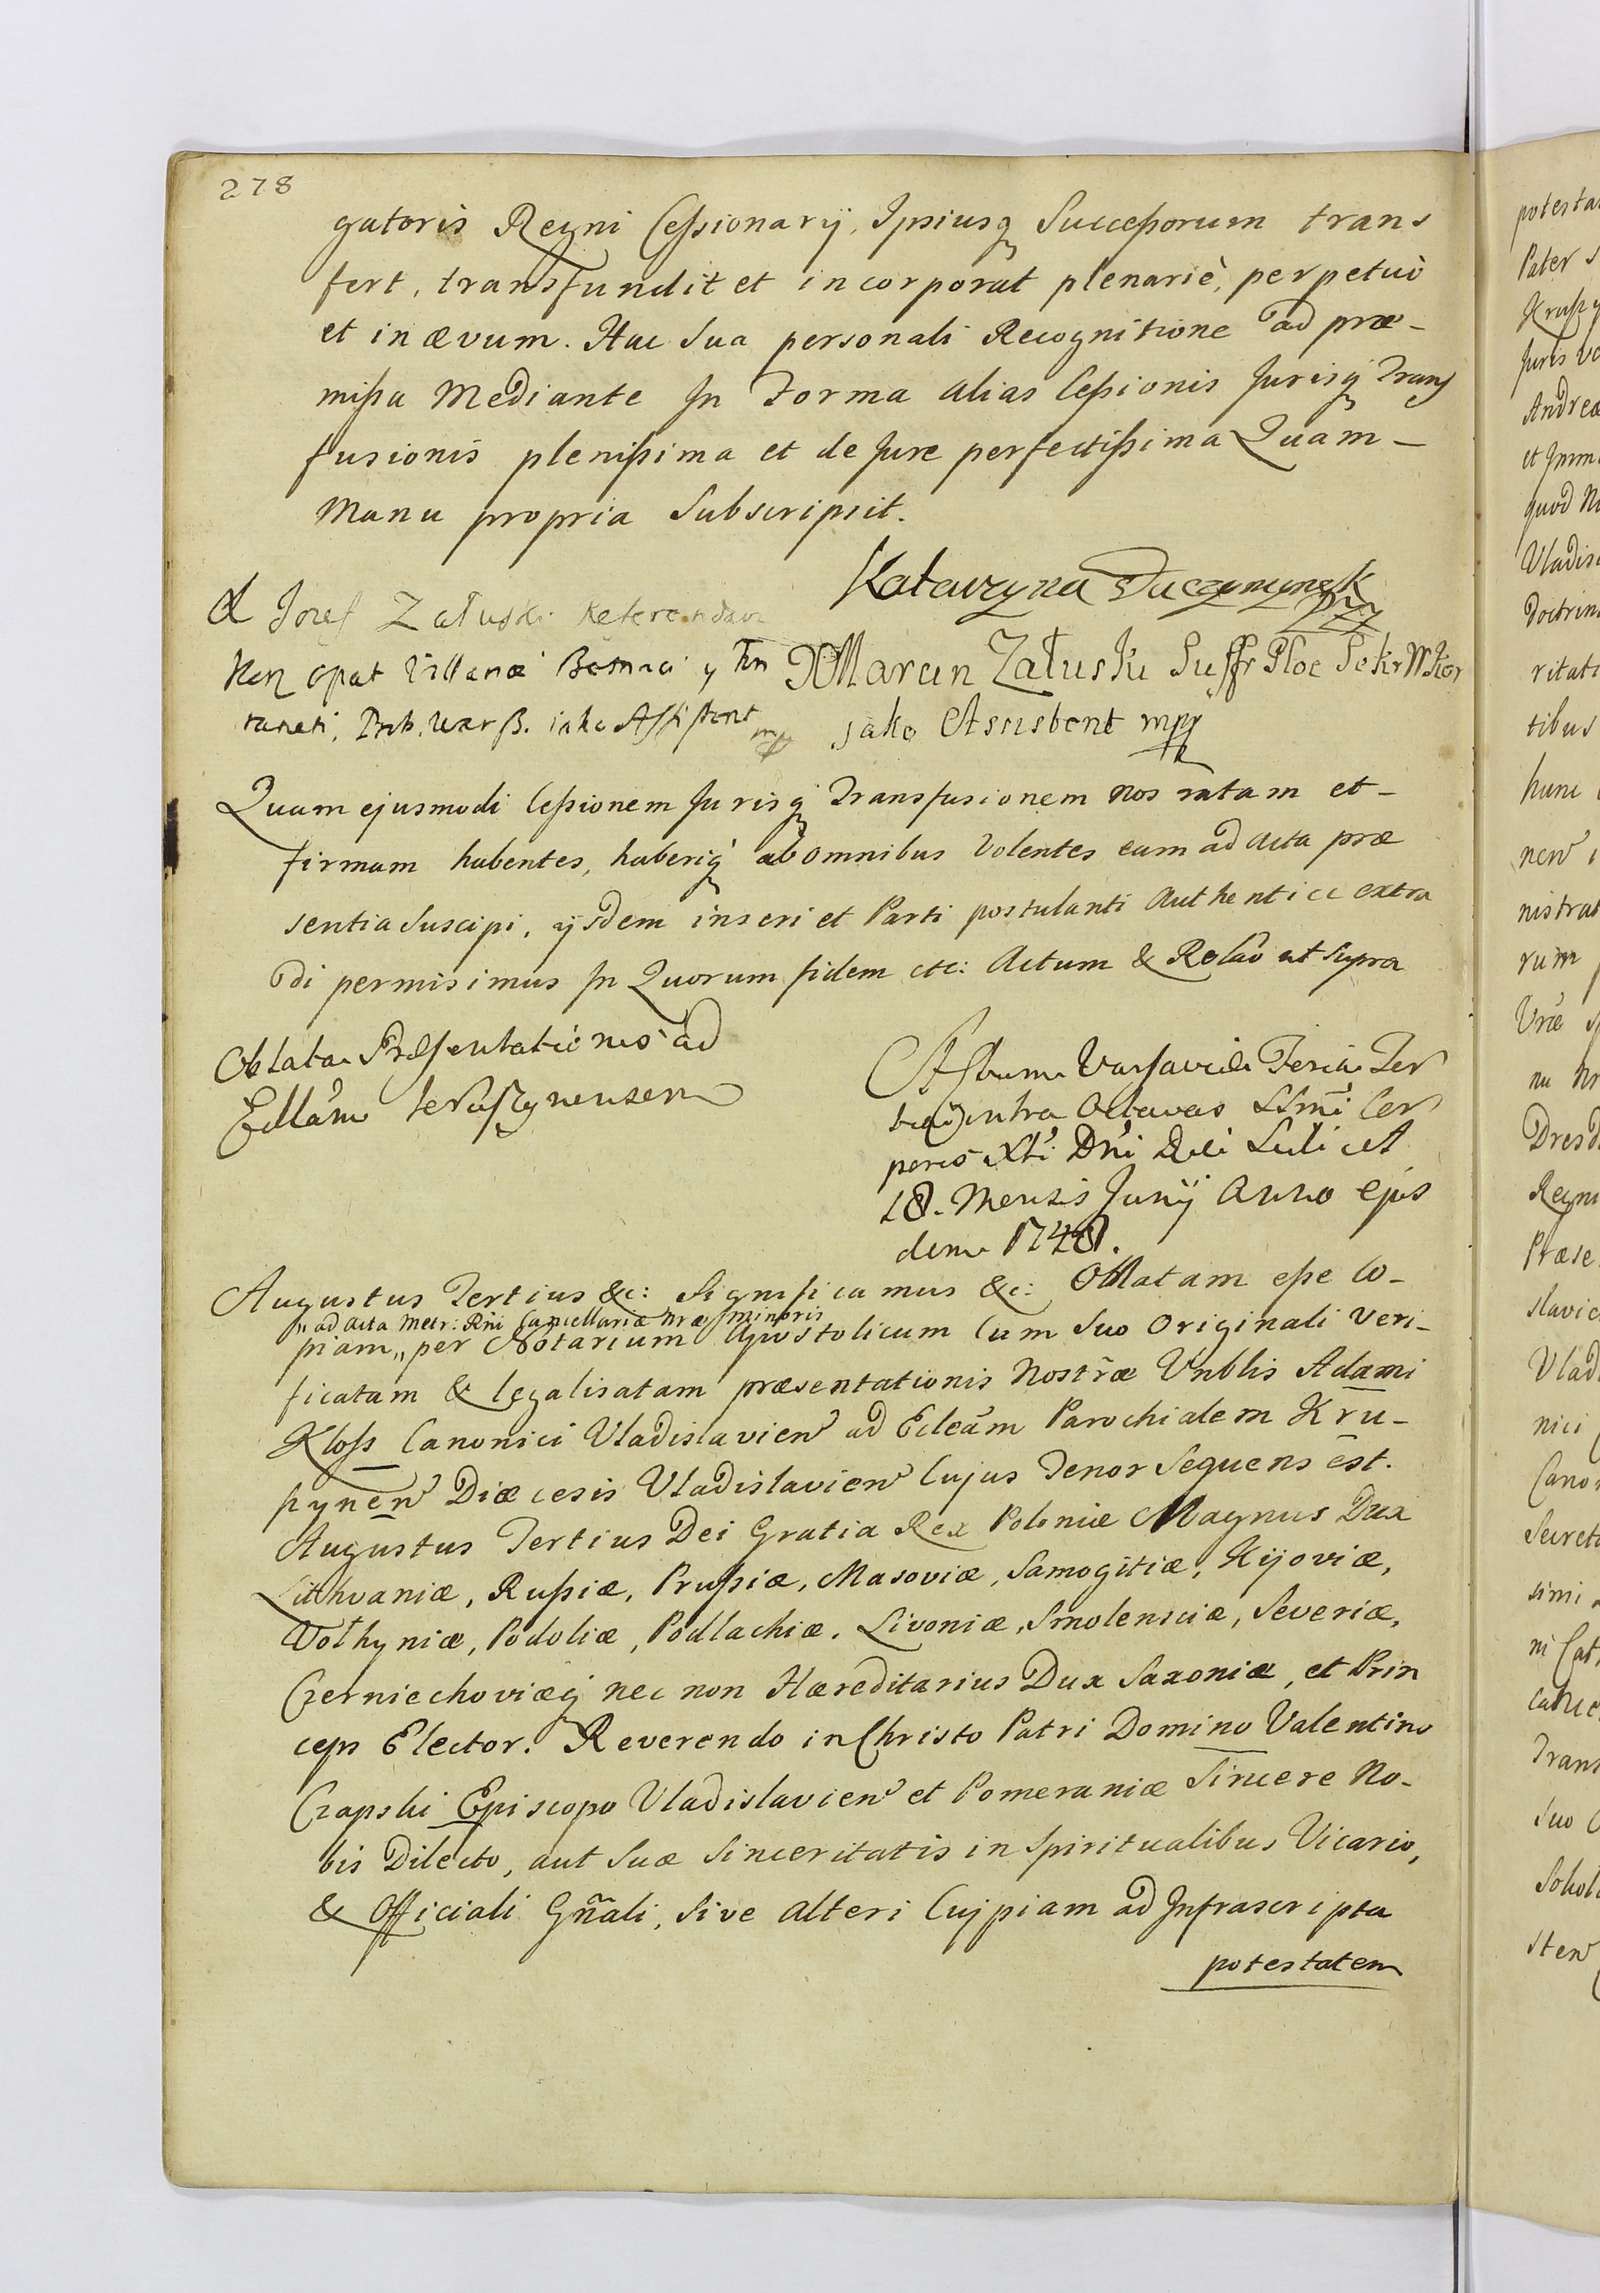 278
gatoris Regni Cessionarij, Ipsiusq Successorum trans
fert, transfundit et incorporat plenariè, perpetuò
et in ævum. Hac Sua personali Recognitione ad præ-
missa Mediante In Forma alias Cessionis Jurisq Trans
fusionis plenissima et de Jure perfectissima Quam-
Manu propria Subscripsit.
Katarzyna
X Jozef Załuski Referendarz
Kor Opat
jako Assistent
X Marcin Załuski Suffr Płoc Sekr W Kor
jako Assistent mpp
Quam ejusmodi Cessionem Jurisq Transfusionem Nos ratam et-
firmam habentes, haberiq ab omnibus Volentes eam ad Acta præ
sentia Suscipi, ijsdem inseri et Parti postulanti Authentice extra
di permisimus In Quorum fidem etc: Actum & Relão ut Supra
Oblata Præsentationis ad
Ecclãm
Actum Varsaviæ Feria Ter
tia intra Octavas SSmi Cor
poris Xti Dni Die Scilicet
18. Mensis Junij Anno Ejus
dem 1748.
Augustus Tertius &c: Significamus &c: Oblatam esse Co-
" ad Acta Metr: Rni Cancellariæ Nræ Minoris
piam,, per Notarium Apostolicum Cum Suo Originali Veri-
ficatam & legalisatam præsentationis Nostræ Vnblis Adami
Kloss Canonici Vladislavien ad Ecleãm Parochialem Kru-
pynen Diæcesis Vladislavien Cujus Tenor Sequens est.
Augustus Tertius Dei Gratia Rex Poloniæ Magnus Dux
Lithvaniæ, Russiæ, Prussiæ, Masoviæ, Samogitiæ, Kijoviæ,
Volhyniæ, Podoliæ, Podlachiæ, Livoniæ, Smolensciæ, Severiæ,
Czerniechoviæq nec non Hæreditarius Dux Saxoniæ, et Prin
ceps Elector. Reverendo in Christo Patri Domino Valentino
Czapski Episcopo Vladislavien et Pomeraniæ Sincere No-
bis Dilecto, aut Suæ Sinceritatis in Spiritualibus Vicario,
& Officiali Gñali, Sive alteri Cujpiam ad Infrascripta
potestatem